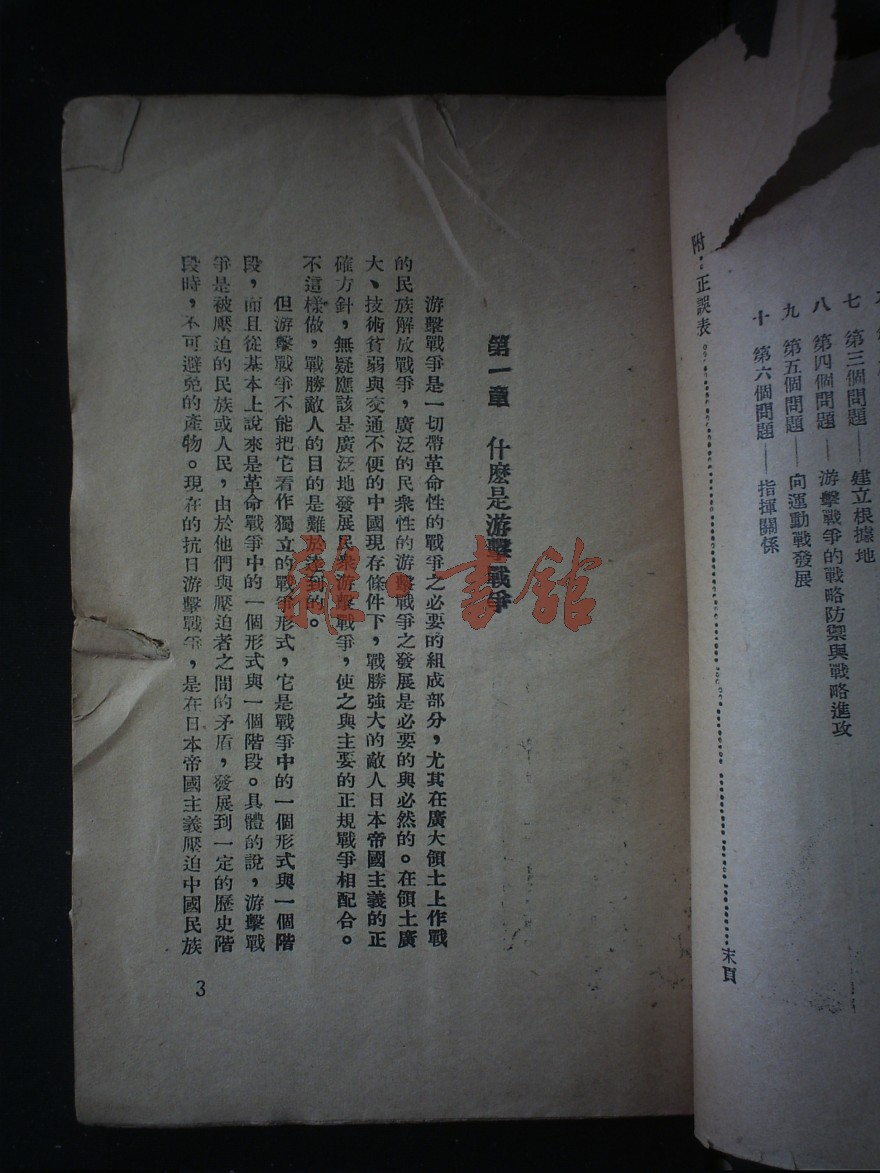 附：正誤表……………………末頁
七 第三個問題——建立根據地
八 第四個問題——游擊戰爭的戰略防禦與戰略進攻
九 第五個問題——向運動戰發展
十 第六個問題——指揮關係
第一章 什麽是游擊戰爭
游擊戰爭是一切帶革命性的戰爭之必要的組成部分，尤其在廣大領土上作戰
的民族解放戰爭，廣泛的民衆性的游擊戰爭之發展是必要的與必然的。在領土廣
大、技術貧弱與交通不便的中國現存條件下，戰勝強大的敵人日本帝國主義的正
確方針，無疑應該是廣泛地發展民衆游擊戰爭，使之與主要的正規戰爭相配合。
不這樣做，戰勝敵人的目的是難於達到的。
但游擊戰爭不能把它看作獨立的戰爭形式，它是戰爭中的一個形式與一個階
段，而且從基本上說來是革命戰爭中的一個形式與一個階段。具體的說，游擊戰
爭是被壓迫的民族或人民，由於他們與壓迫者之間的矛盾，發展到一定的歷史階
段時，不可避免的產物。現在的抗日游擊戰爭，是在日本帝國主義壓迫中國民族
3
雜·書館